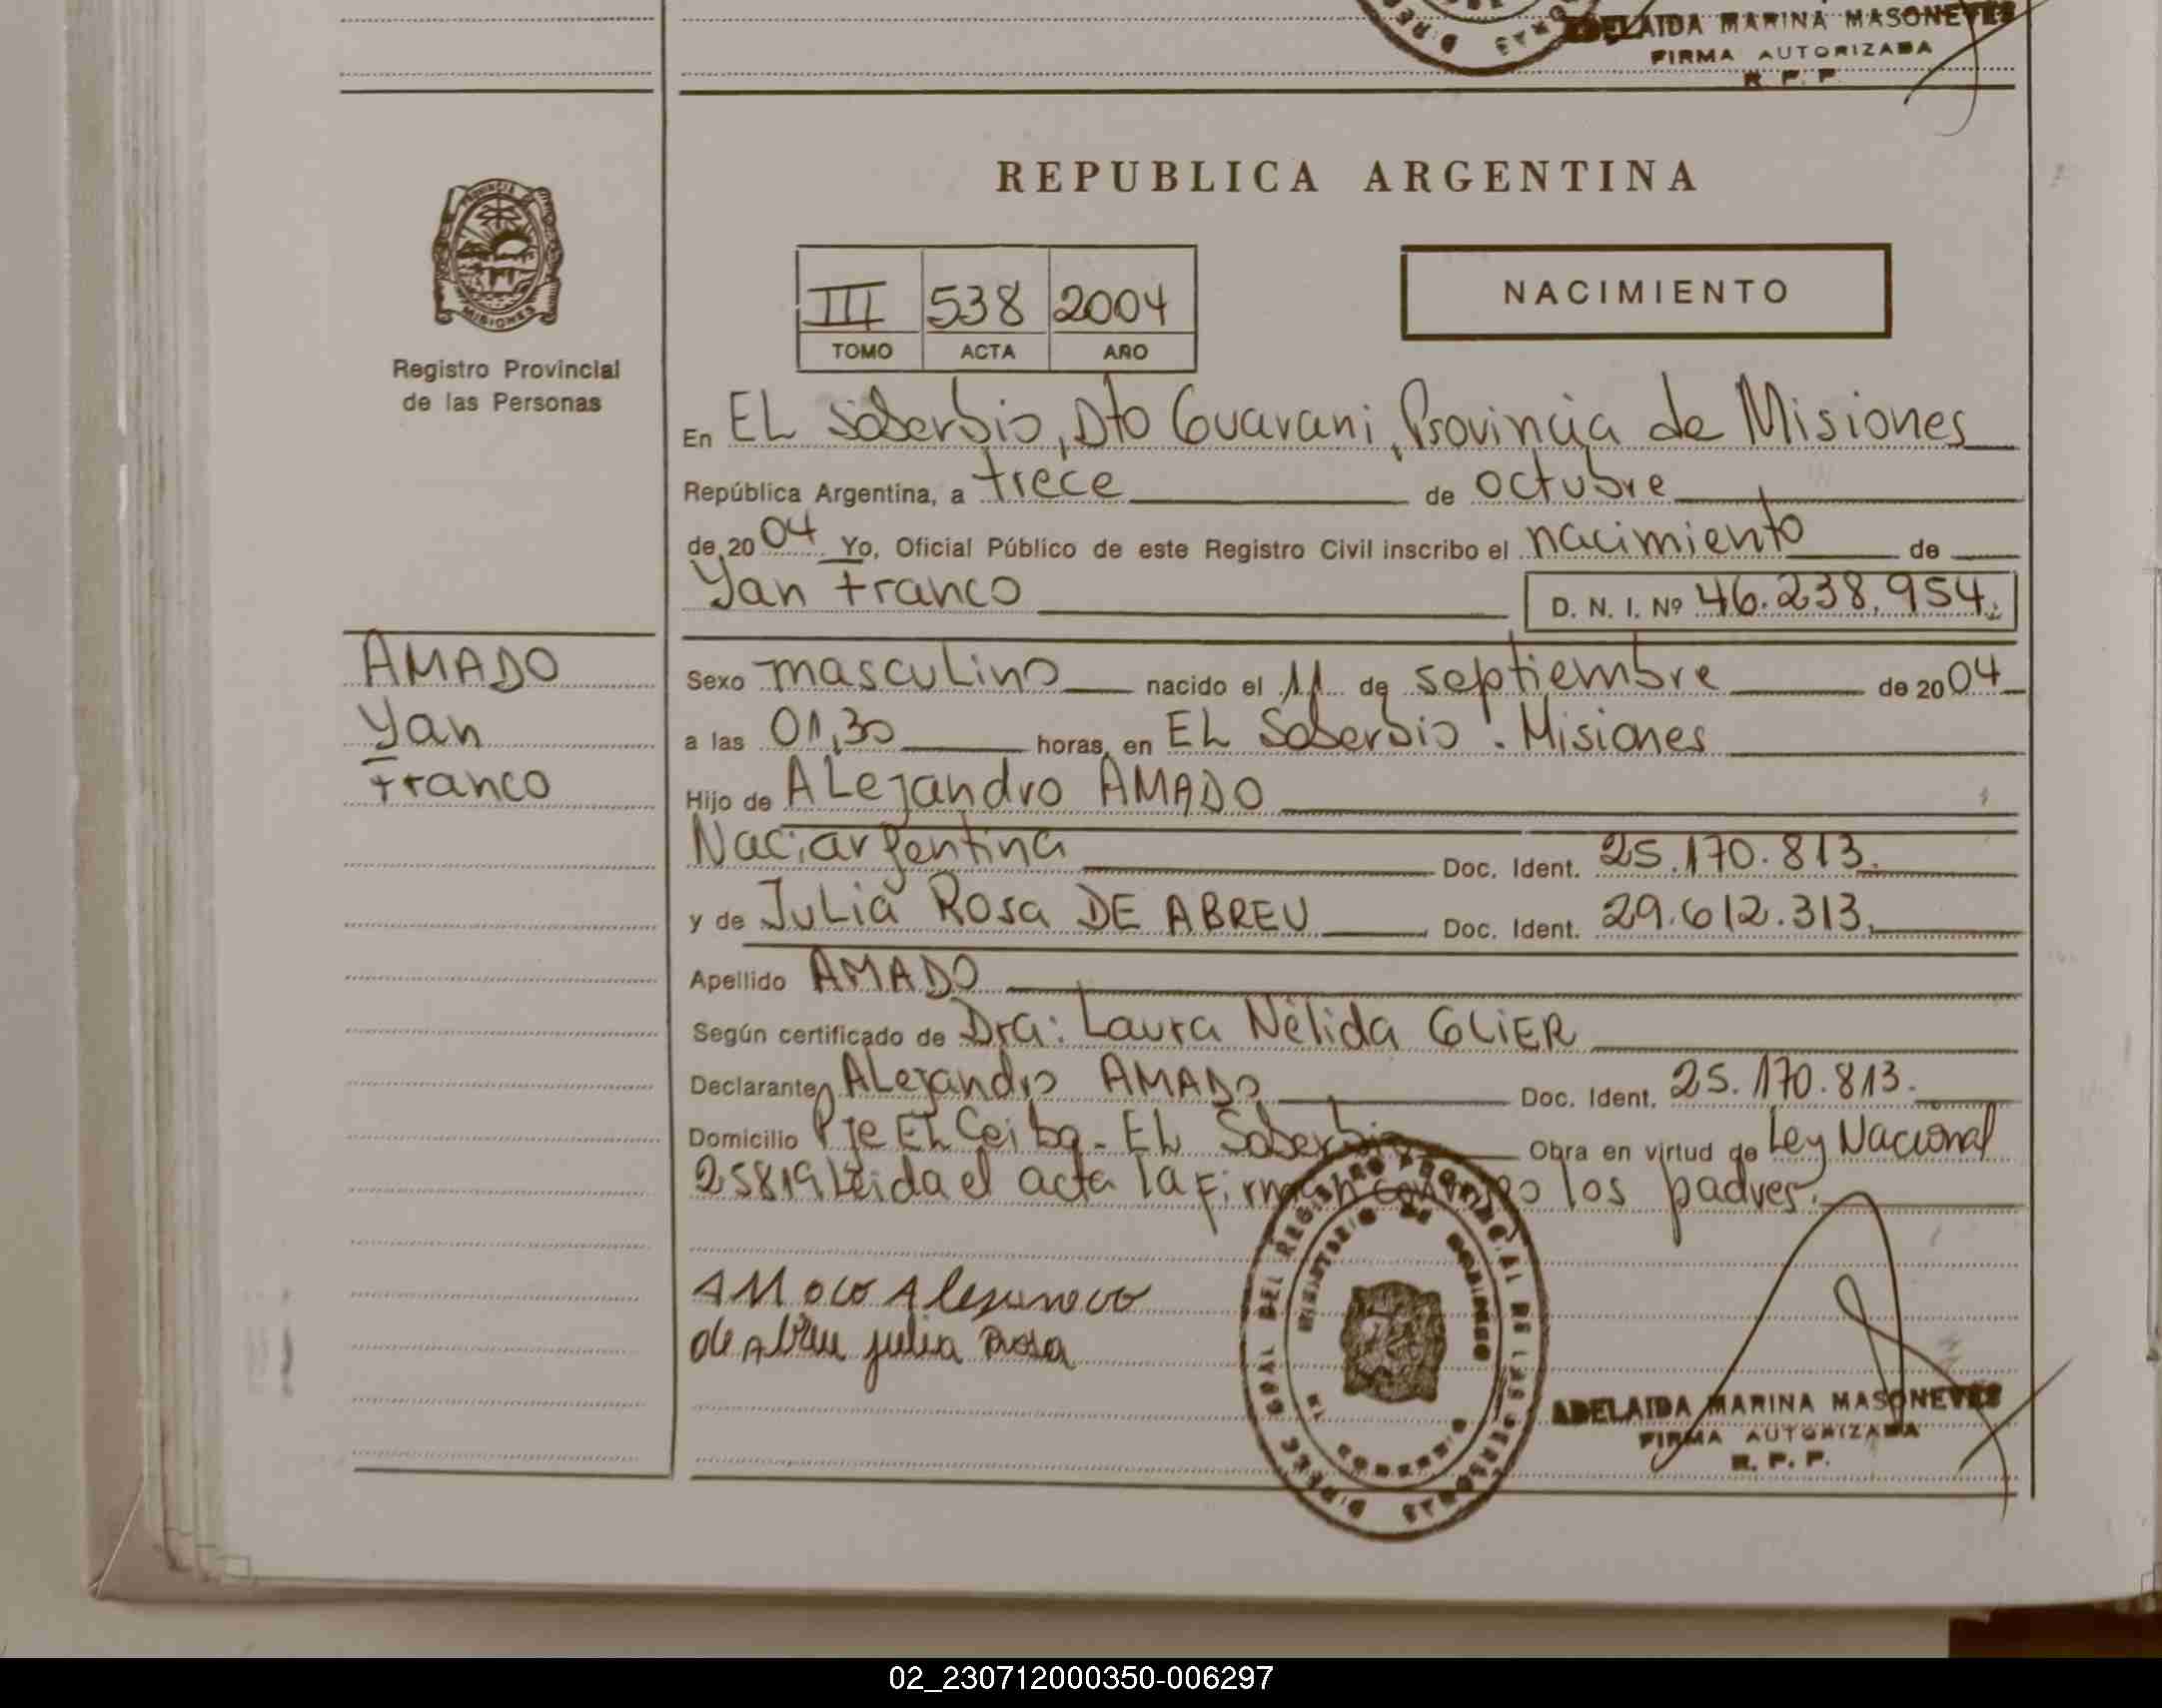 ADELAIDA MARINA MASONEVES
FIRMA AUTORIZADA
R. P. P.
PROVINCIA
MISIONES
Registro Provincial
de las Personas
REPUBLICA ARGENTINA
III 538 2004
TOMO ACTA AÑO
NACIMIENTO
En EL Soberbio, Dto Guarani, Provincia de Misiones
República Argentina, a trece de octubre
de 2004 Yo, Oficial Público de este Registro Civil inscribo el nacimiento de
Yan Franco D. N. I. Nº 46.238.954.
AMADO
Yan
Franco
Sexo masculino nacido el 11 de septiembre de 2004
a las 01,30 horas, en EL Soberbio. Misiones
Hijo de ALejandro AMADO
Naci:argentina Doc. Ident. 25.170.813.
y de JuLia Rosa DE ABREU Doc. Ident. 29.612.313.
Apellido AMADO
Según certificado de Dra: Laura Nélida GLIER
Declarante ALejandro AMADO Doc. Ident. 25.170.813.
Domicilio Pje EL Ceibo - EL Soberbio Obra en virtud de Ley Nacional
25819 Leida el acta la Firman conmigo los padres.
AMADO Alejandro
de Abreu julia Rosa
DIREC GRAL DEL REGISTRO PROVINCIAL DE LAS PERSONAS
MINISTERIO DE GOBIERNO
ADELAIDA MARINA MASONEVES
FIRMA AUTORIZADA
R. P. P.
02_230712000350-006297